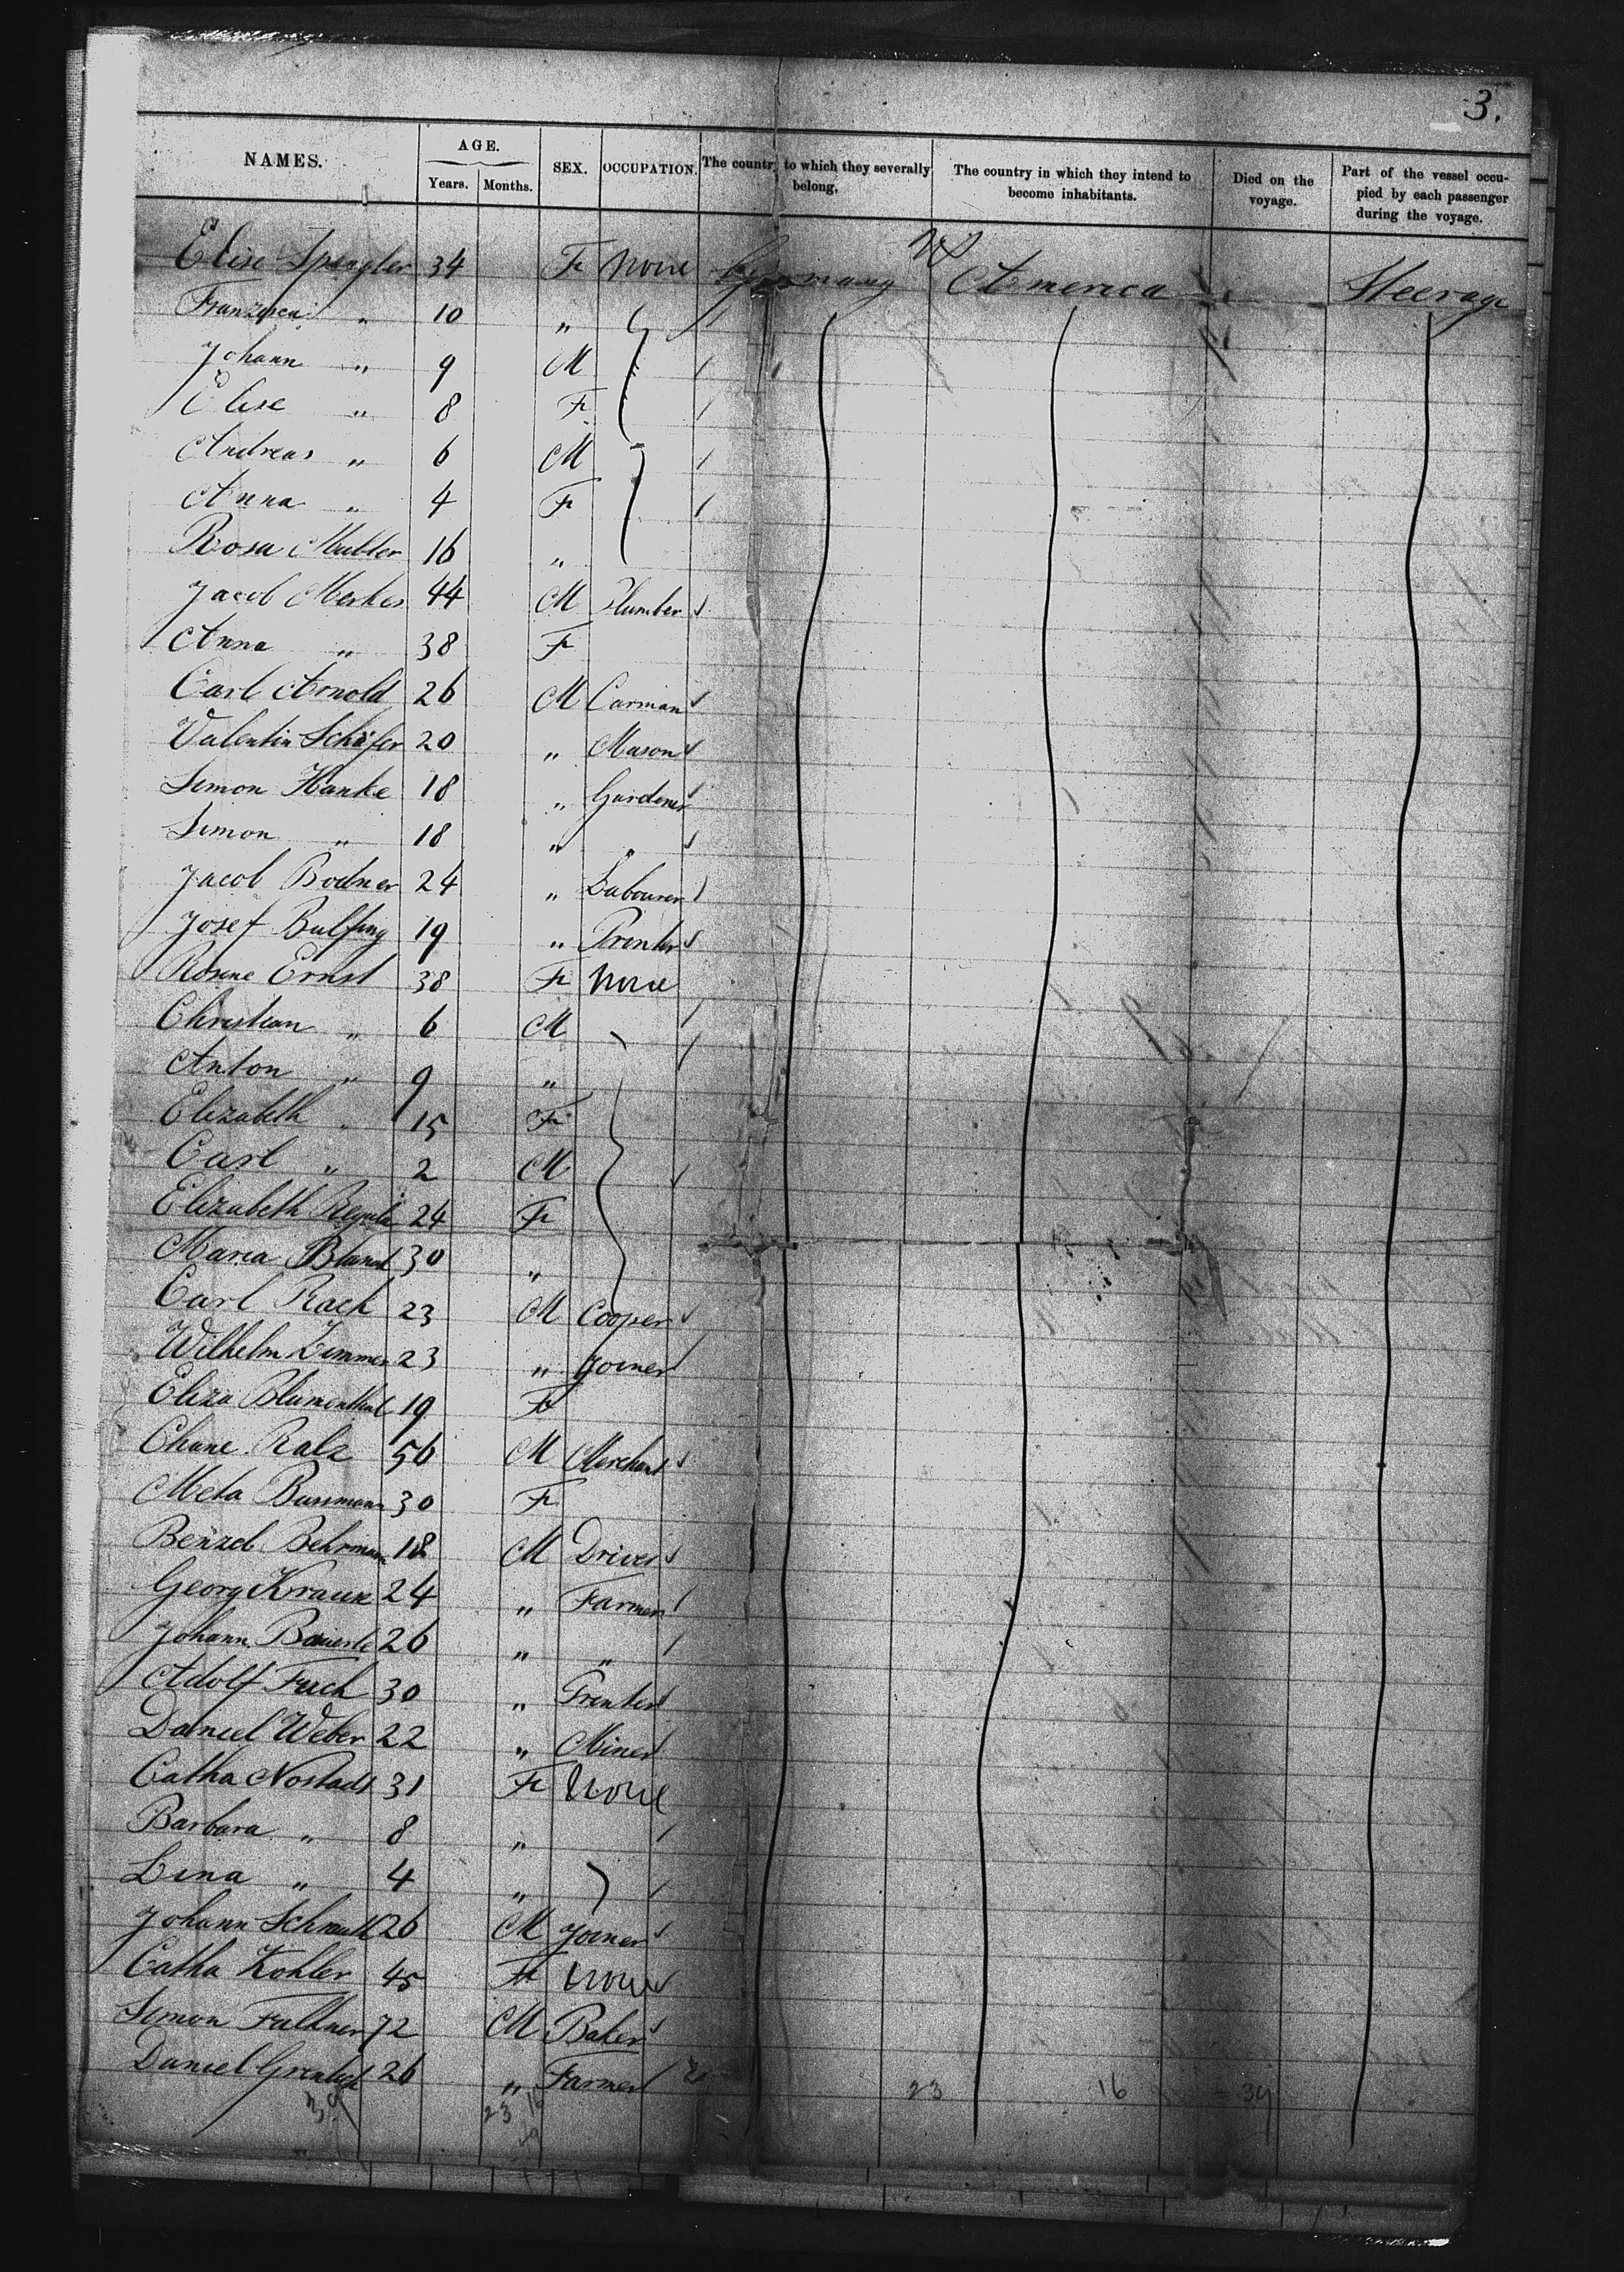 3.
NAMES. AGE. SEX. OCCUPATION. The country to which they severally belong, The country in which they intend to become inhabitants. Died on the voyage. Part of the vessel occupied by each passenger during the voyage.
Years. Months.
Elise Spengler 34 Fe None Germany US America Steerage
Franzisca " 10 "
Johann " 9 M
Elise " 8 Fe
Andreas " 6 M
Anna " 4 Fe
Rosa Muller 16 "
Jacob Merkes 44 M Plumber
Anna " 38 Fe
Carl Arnold 26 M Carman
Valentin Schäfer 20 " Mason
Simon Hanke 18 " Gardener
Simon " 18 " "
Jacob Bodner 24 " Labourer
Josef Bulfing 19 " Printer
Rosine Ernst 38 Fe None
Christian " 6 M
Anton " 9 "
Elizabeth " 15 Fe
Carl " 2 M
Elizabeth 24 Fe
Maria 30 "
Carl Rack 23 M Cooper
Wilhelm Zimmer 23 " Joiner
Eliza Blumenthal 19 Fe
Chane Ralz 56 M Merchant
Meta Bussmann 30 Fe
Behrmann 18 M Driver
Georg Kraus 24 " Farmer
Johann Bauerle 26 " "
Adolf Fuch 30 " Printer
Daniel Weber 22 " Miner
Catha Nostadt 31 Fe None
Barbara " 8 "
Lina " 4 "
Johann 26 M Joiner
Catha Kohler 45 Fe None
Simon Falkner 72 M Baker
Daniel 26 " Farmer 23 16 = 39
39 23 16